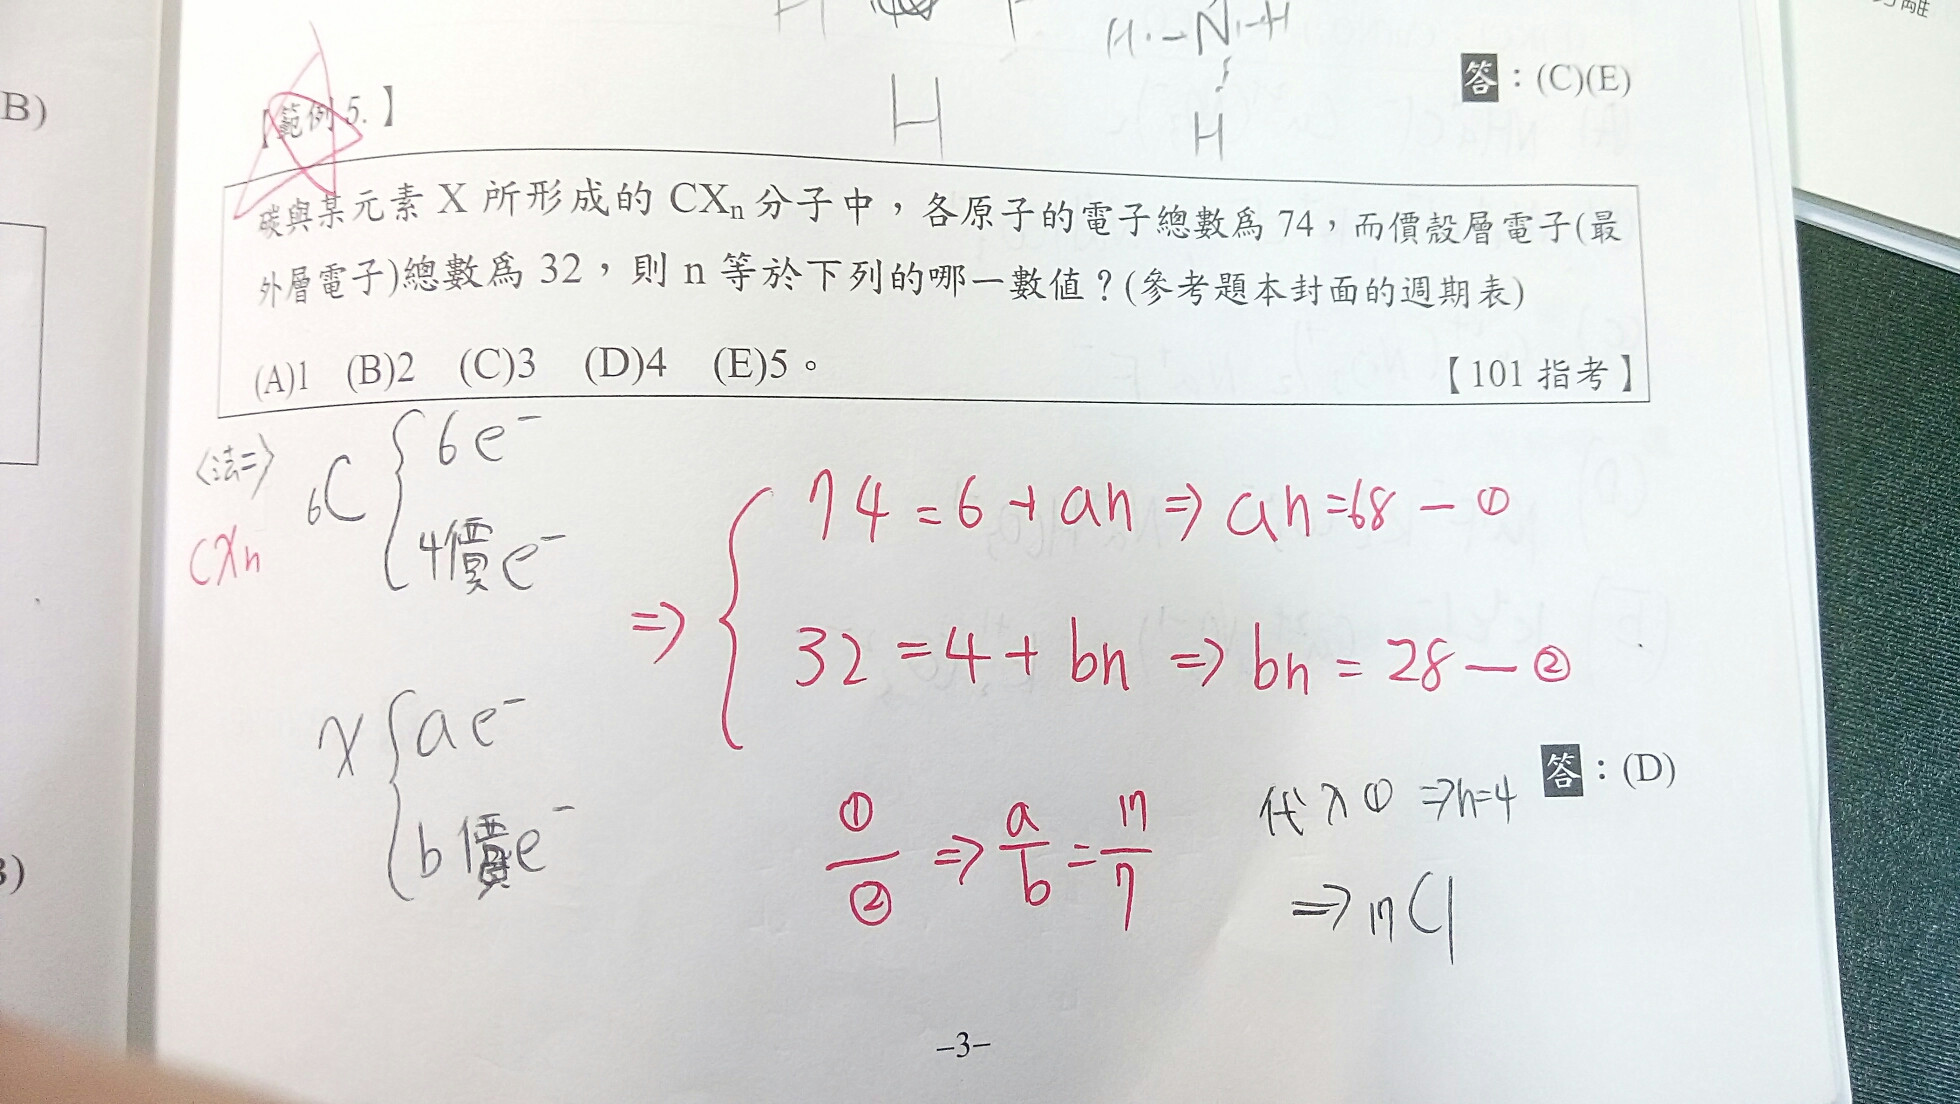 離
B)
H
H·–N·–H
H
H
答:(C)(E)
【範例5.】
碳與某元素 X 所形成的 CXn 分子中,各原子的電子總數為 74,而價殼層電子(最
外層電子)總數為 32,則 n 等於下列的哪一數值?(參考題本封面的週期表)
(A)1 (B)2 (C)3 (D)4 (E)5。
【101 指考】
<法二>
CXn
6C { 6e⁻
4價e⁻
X { ae⁻
b價e⁻
⇒ { 74 = 6 + an ⇒ an = 68 — ①
32 = 4 + bn ⇒ bn = 28 — ②
①/② ⇒ a/b = 17/7
代入① ⇒ n=4
⇒ 17Cl
答:(D)
–3–